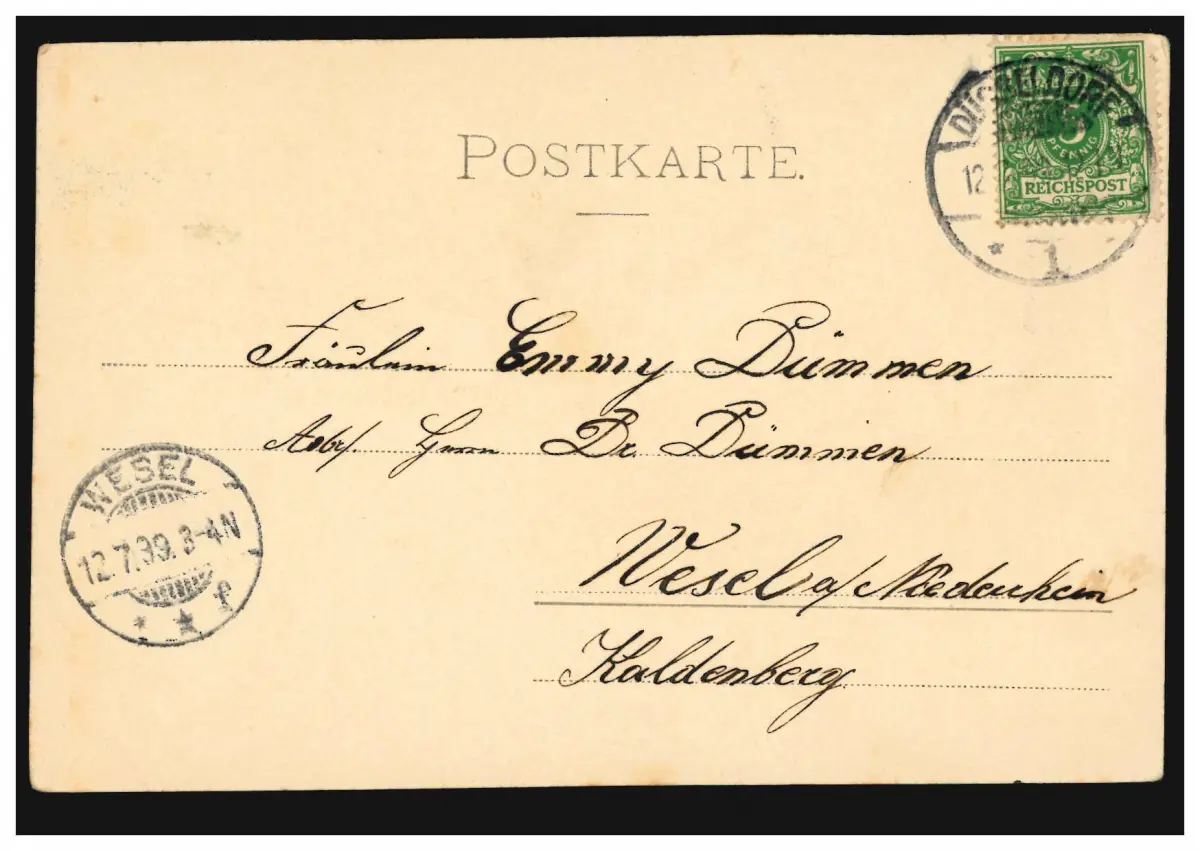 POSTKARTE.
DÜSSELDORF
12
1
5
PFENNIG
REICHSPOST
Fräulein Emmy Dümmen
Adr. Herrn Dr. Dümmen
WESEL
12.7.99. 3-4N
* * f
Wesel a/ Niederrhein
Kaldenberg